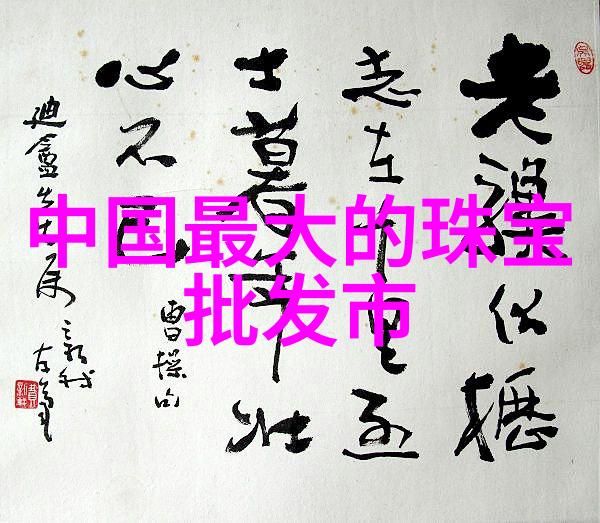 中国最大的珠宝
批发市
老骥伏枥
志在千里烈
士暮年壮
心不已
曹操句